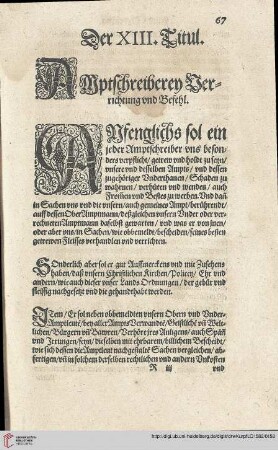 67
Der XIII. Titul.
AMptschreiberey Ver-
richtung vnd Befehl.
ANfenglichs sol ein
jeder Amptschreiber vns beson-
ders verpflicht / getrew vnd holdt zu seyn /
vnsere vnd desselben Ampts / vnd dessen
zugehöriger Vnderthanen / Schaden zu
wahrnen / verhüten vnd wenden / auch
Frommen vnd Bestes zu werben. Vnd daß
in Sachen vns vnd die vnsern / auch gemeines Ampt / berührendt /
auff dessen Ober Amptmann / deßgleichen vnsern Vnder oder ver-
rechneten Amptmann daselbst gewarten / vnd was er von jnen /
oder aber vns in Sachen / wie obvermeldt / bescheiden / seines besten
getrewen Fleisses verhandlen vnd verrichten.
SOnderlich aber sol er gut Auffmerckens vnd mit Zusehens
haben / daß vnsern Christlichen Kirchen / Policey / Ehe vnd
andern / wie auch dieser vnser Lands Ordnungen / der gebür vnd
fleissig nachgesetzt vnd die gehandthabt werden.
ITem / Er sol neben obbemeldten vnsern Obern vnd Vnder-
Amptleuten / bey aller Ampts Verwandte / Geistliche vñ Welt-
lichen / Bürgern vñ Bawren / Verhöre jres Anligens / auch Späñ
vnd Jrrungen / seyn / dieselben mit ehrbarem / billichem Bescheidt /
wie sich dessen die Amptleut nachgesetzte Sachen vergleichen / ab-
fertigen / vñ in solchem derselben rechten vnd andern Vnkosten
R iij
vnd
http://digi.ub.uni-heidelberg.de/diglit/drwKurpfLO1582/0153